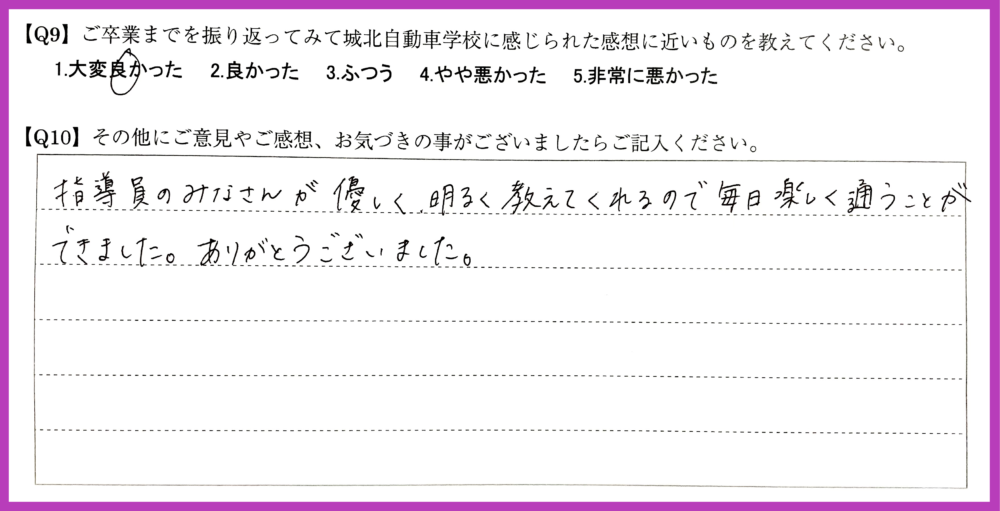 【Q9】ご卒業までを振り返ってみて城北自動車学校に感じられた感想に近いものを教えてください。
1.大変良かった 2.良かった 3.ふつう 4.やや悪かった 5.非常に悪かった
【Q10】その他にご意見やご感想、お気づきの事がございましたらご記入ください。
指導員のみなさんが優しく、明るく教えてくれるので毎日楽しく通うことが
できました。ありがとうございました。